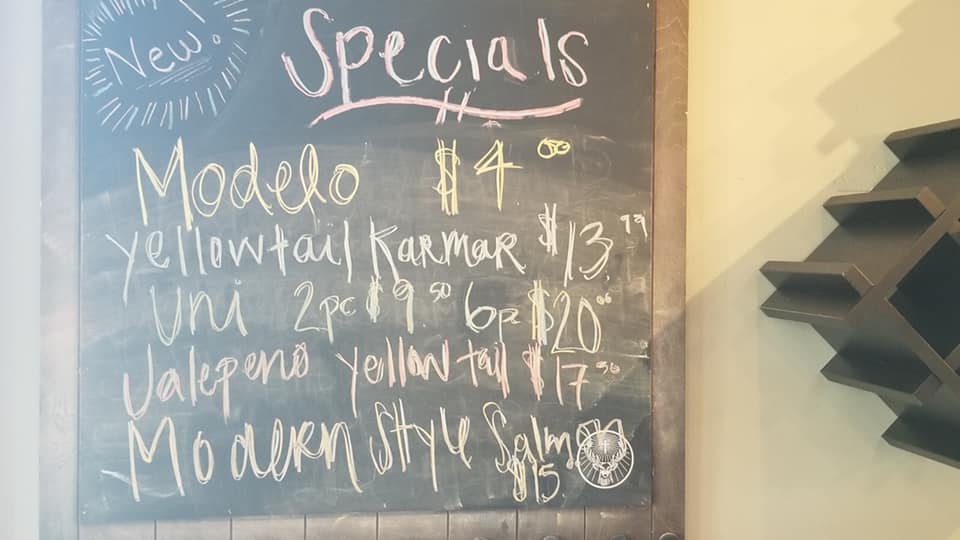 New!
Specials
Modelo $4.00
yellowtail Karmar $13.99
Uni 2pc $9.50 6pc $20.00
Jalepeno yellowtail $17.50
Modern Style Salmon
$15